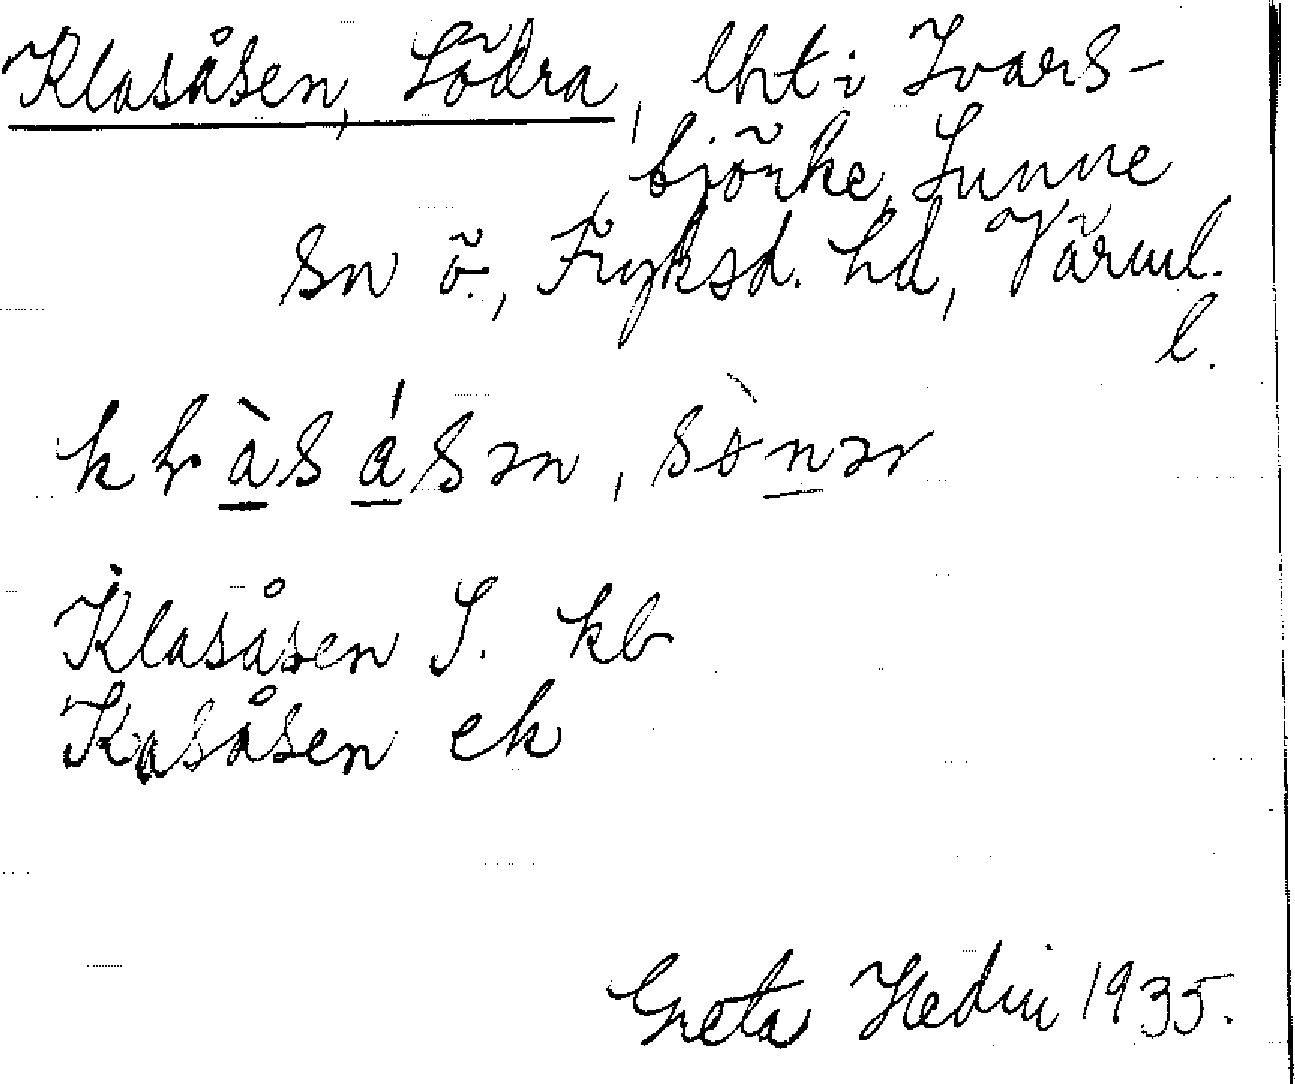 Klasåsen, Södra, lht i Ivars-
björke, Sunne
sn ö., Fryksd. hd, Värml.
l.
Klasåsen S. kb
Kasåsen ek
Greta Hedin 1935.